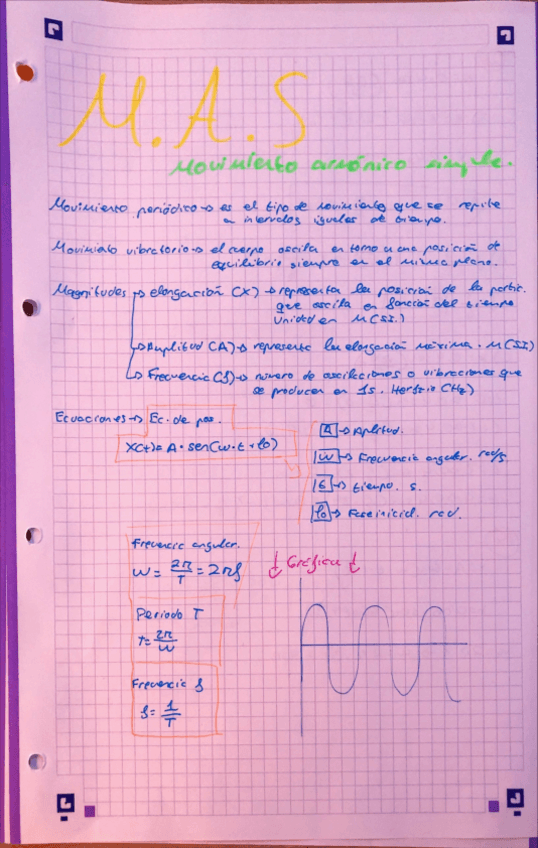 M.A.S
Movimiento armónico simple.
Movimiento periódico → es el tipo de movimiento que se repite
a intervalos iguales de tiempo.
Movimiento vibratorio → el cuerpo oscila en torno a una posición de
equilibrio siempre en el mismo plano.
Magnitudes → elongación (X) → representa la posición de la partic.
que oscila en función del tiempo
unidad en M (SI.)
→ Amplitud (A) → representa la elongación máxima. M (SI)
→ Frecuencia (f) → número de oscilaciones o vibraciones que
se producen en 1s. Hertzio (Hz)
Ecuaciones → Ec. de pos.
X(t) = A · sen(w · t + φ0)
A → Amplitud.
W → Frecuencia angular. rad/s.
t → tiempo. s.
φ0 → Fase inicial. rad.
Frecuencia angular.
W = 2π/T = 2πf
↓ Gráfica ↓
Periodo T
T = 2π/W
Frecuencia f
f = 1/T